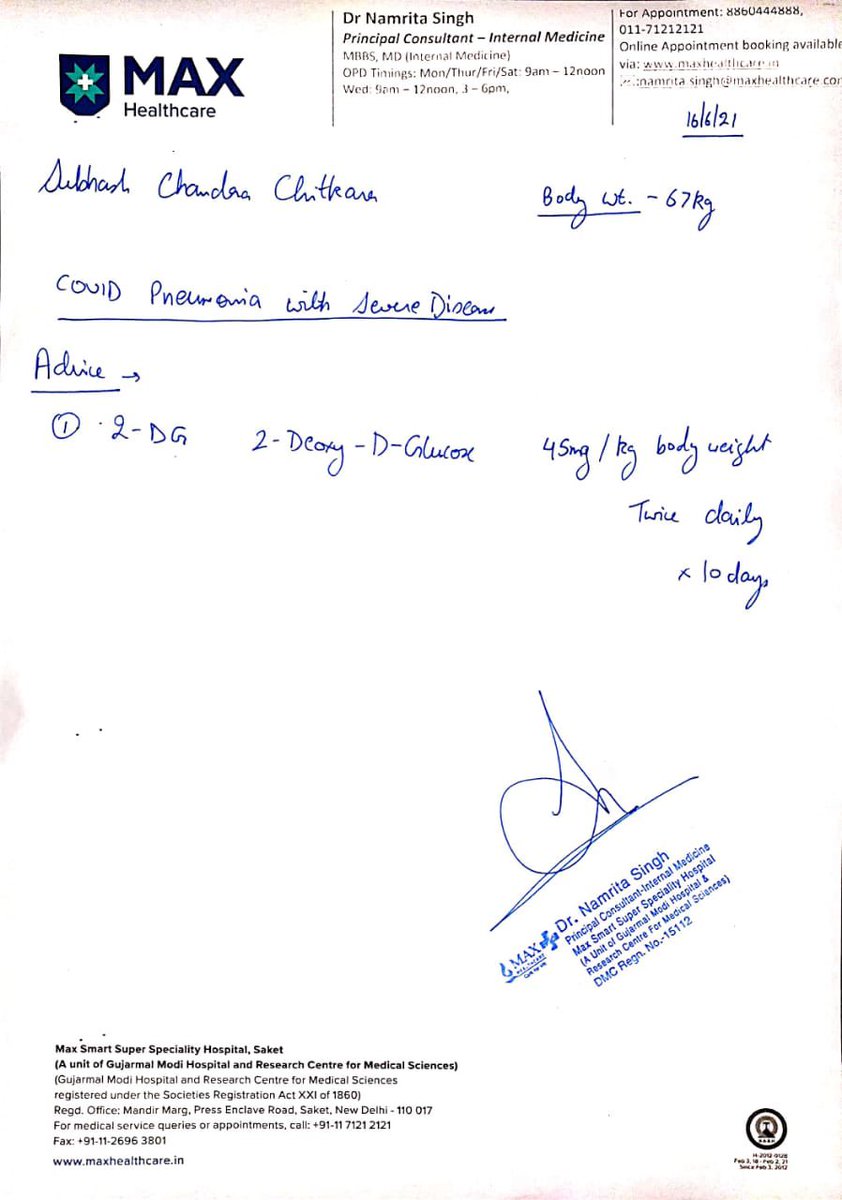 MAX
Healthcare
Dr Namrita Singh
Principal Consultant – Internal Medicine
MBBS, MD (Internal Medicine)
OPD Timings: Mon/Thur/Fri/Sat: 9am – 12noon
Wed: 9am – 12noon, 3 – 6pm,
For Appointment: 8860444888,
011-71212121
Online Appointment booking available
via: www.maxhealthcare.in
namrita.singh@maxhealthcare.com
16/6/21
Subhash Chandra Chitkara
Body wt. - 67kg
COVID Pneumonia with Severe Disease
Advice →
① 2-DG 2-Deoxy-D-Glucose 45mg/kg body weight
Twice daily
x 10 days
MAX
Dr. Namrita Singh
Principal Consultant-Internal Medicine
Max Smart Super Speciality Hospital
(A Unit of Gujarmal Modi Hospital &
Research Centre For Medical Sciences)
DMC Regn. No.-15112
Max Smart Super Speciality Hospital, Saket
(A unit of Gujarmal Modi Hospital and Research Centre for Medical Sciences)
(Gujarmal Modi Hospital and Research Centre for Medical Sciences
registered under the Societies Registration Act XXI of 1860)
Regd. Office: Mandir Marg, Press Enclave Road, Saket, New Delhi - 110 017
For medical service queries or appointments, call: +91-11 7121 2121
Fax: +91-11-2696 3801
www.maxhealthcare.in
H-2012-0128
Feb 3, 18 - Feb 2, 21
Since Feb 3, 2012